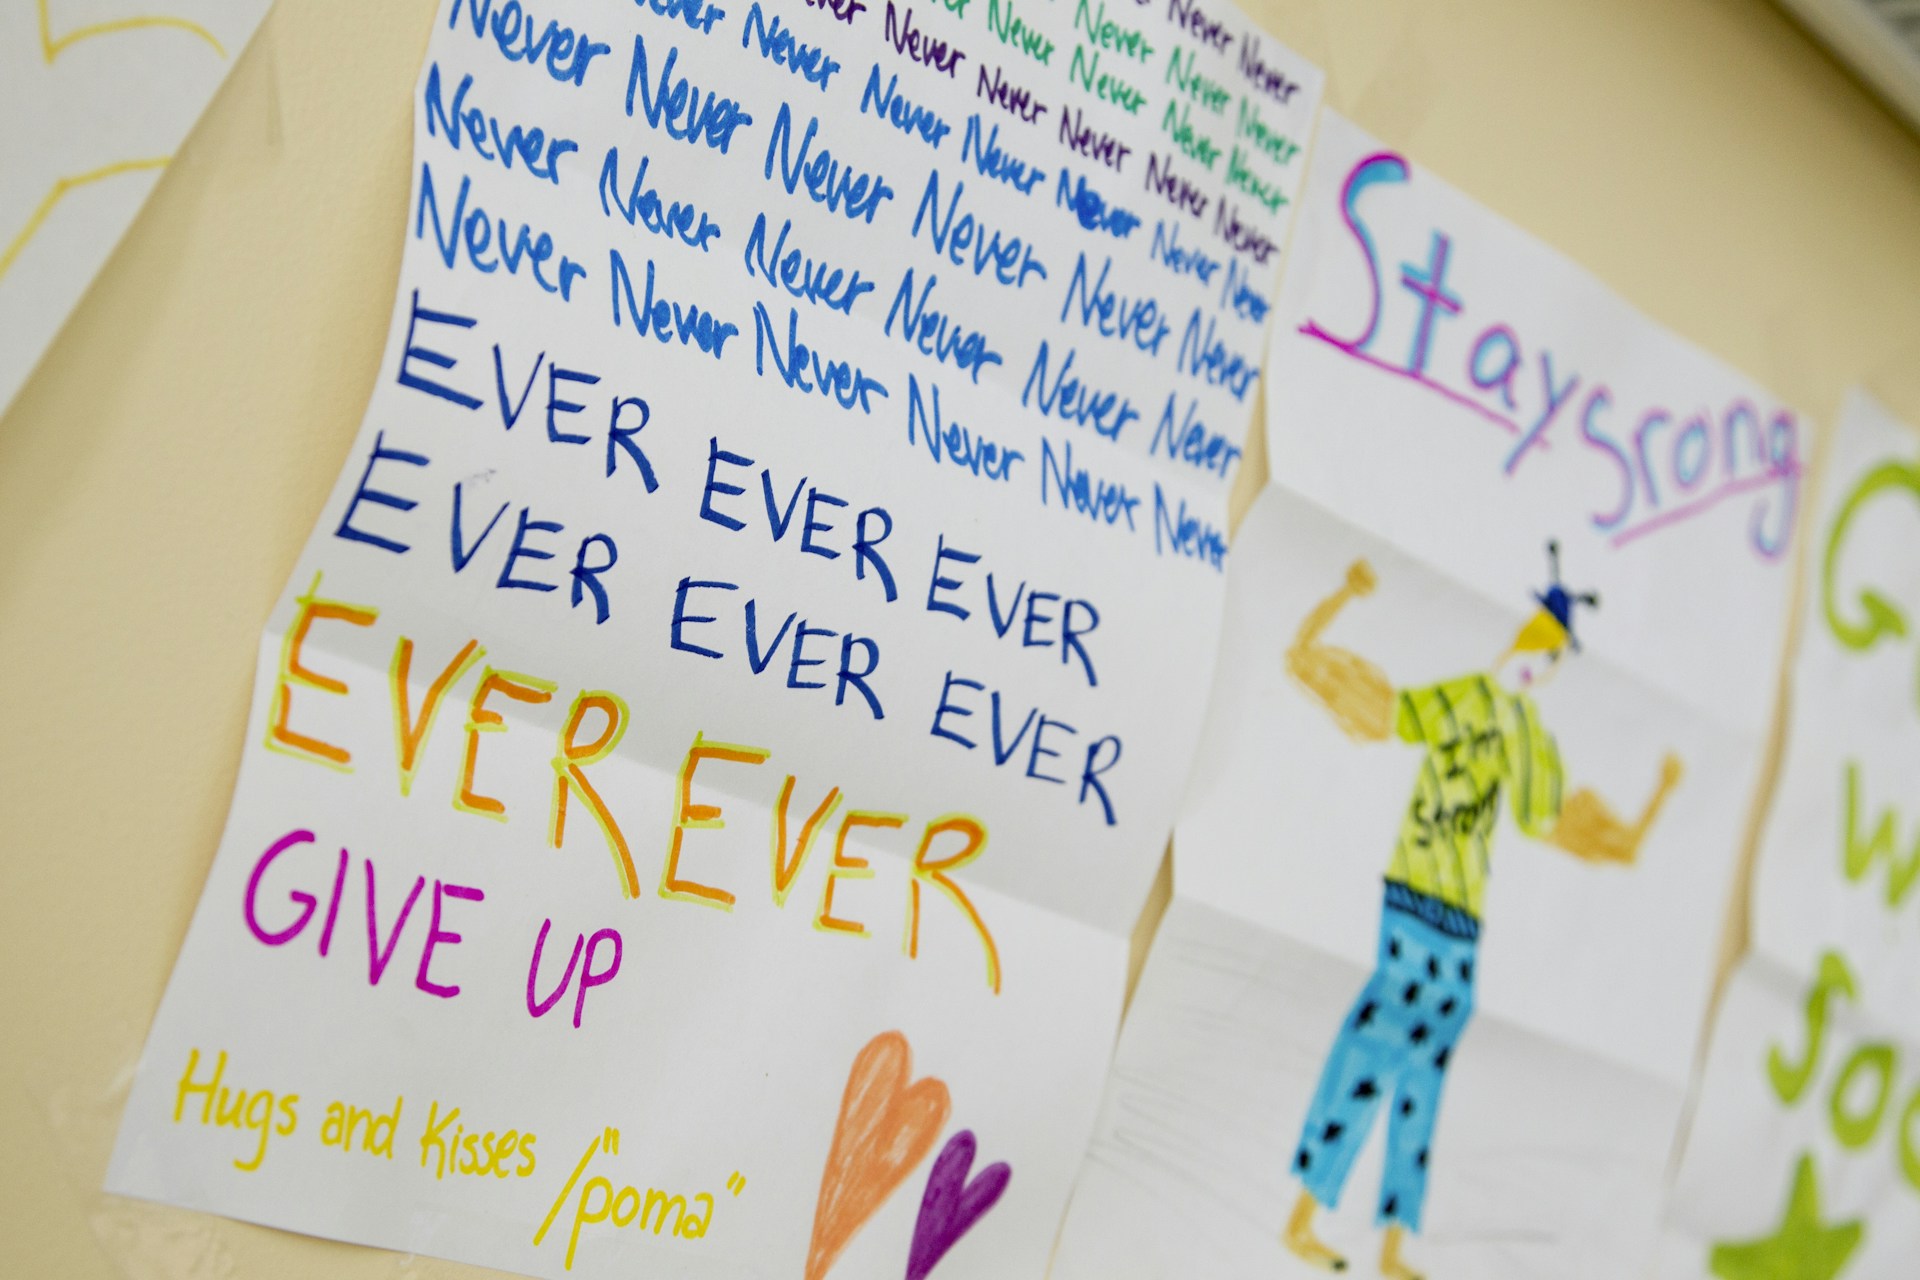 Never Never
Never Never Never
Never Never Never Never
Never Never Never Never Never
Never Never Never Never Never Never
Never Never Never Never Never Never
Never Never Never Never Never Never
Never Never Never Never Never Never
EVER EVER EVER
EVER EVER EVER
EVER EVER
GIVE UP
Hugs and Kisses /"poma"
Stay Srong
I'm